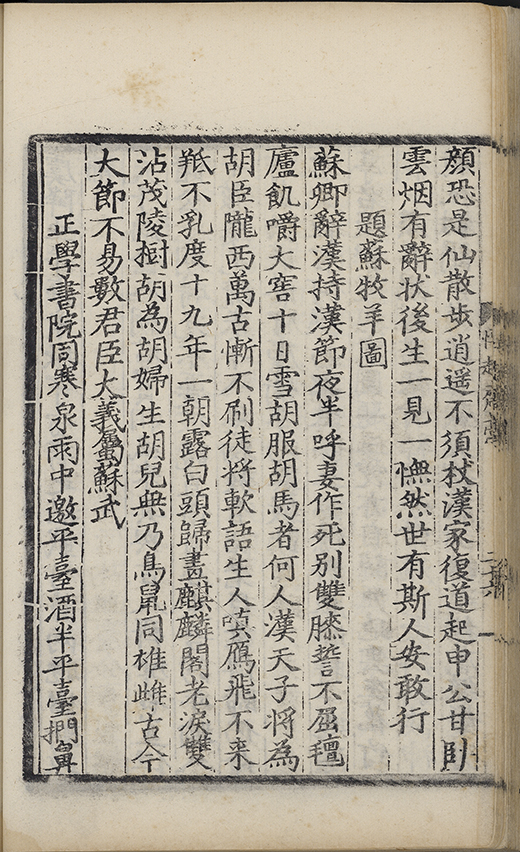 顔恐是仙散步逍遥不須杖漢家復道起申公甘卧
雲烟有辭状後生一見一憮然世有斯人安敢行
題蘇牧羊圖
蘇卿辭漢持漢節夜半呼妻作死别雙膝誓不屈氊
廬飢嚼大窖十日雪胡服胡馬者何人漢天子將為
胡臣隴西萬古慚不刷徒將軟語生人嗔鴈飛不来
羝不乳度十九年一朝露白頭歸畫麒麟閣老淚雙
沾茂陵樹胡為胡婦生胡兒無乃鳥鼠同雄雌古今
大節不易數君臣大義屬蘇武
正學書院同寒泉雨中邀平臺酒半平臺捫鼻